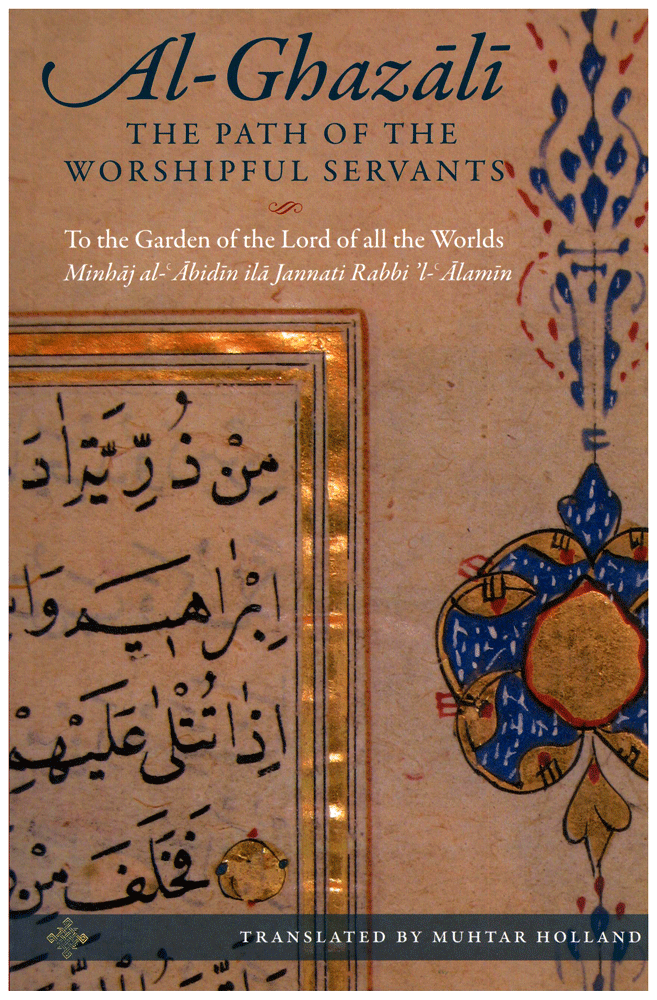 Al-Ghazālī
THE PATH OF THE
WORSHIPFUL SERVANTS
To the Garden of the Lord of all the Worlds
Minhāj al-ʿĀbidīn ilā Jannati Rabbi ’l-ʿĀlamīn
مِنْ ذُرِّيَّةِ
اِبْرٰاهيمَ
اِذٰا تُتْلٰى عَلَيْهِمْ
فَخَلَفَ مِنْ
TRANSLATED BY MUHTAR HOLLAND